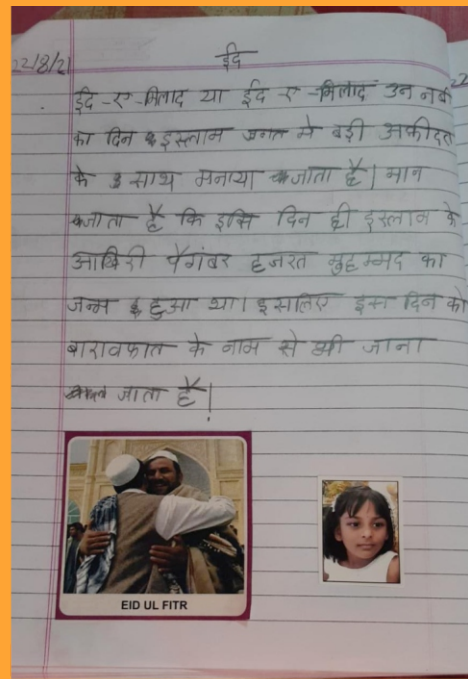 22/8/21
ईद
ईद-ए-मिलाद या ईद ए-मिलाद उन नबी
का दिन इस्लाम जगत मे बड़ी अकीदत
के साथ मनाया जाता है। मान
जाता है कि इसि दिन ही इस्लाम के
आखिरी पैगंबर हजरत मुहम्मद का
जन्म हुआ था। इसलिए इस दिन को
बारावफात के नाम से भी जाना
जाता है।
EID UL FITR